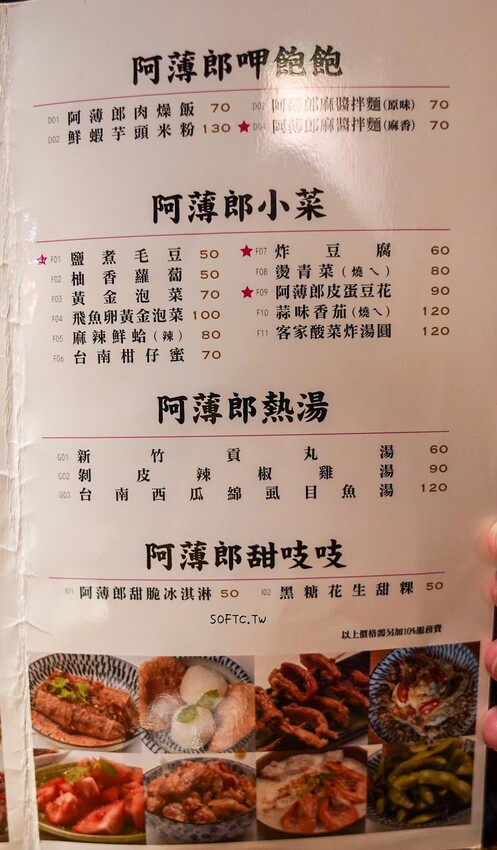 阿薄郎呷飽飽
D01 阿薄郎肉燥飯 70
D02 鮮蝦芋頭米粉 130
D03 阿薄郎麻醬拌麵(原味) 70
★ D04 阿薄郎麻醬拌麵(麻香) 70
阿薄郎小菜
★ F01 鹽煮毛豆 50
F02 柚香蘿蔔 50
F03 黃金泡菜 70
F04 飛魚卵黃金泡菜 100
F05 麻辣鮮蛤(辣) 80
F06 台南柑仔蜜 70
★ F07 炸豆腐 60
F08 燙青菜(燒ㄟ) 80
★ F09 阿薄郎皮蛋豆花 90
F10 蒜味香茄(燒ㄟ) 120
F11 客家酸菜炸湯圓 120
阿薄郎熱湯
G01 新竹貢丸湯 60
G02 剝皮辣椒雞湯 90
G03 台南西瓜綿虱目魚湯 120
阿薄郎甜吱吱
I01 阿薄郎甜脆冰淇淋 50
I02 黑糖花生甜粿 50
SOFTC.TW
以上價格需另加10%服務費